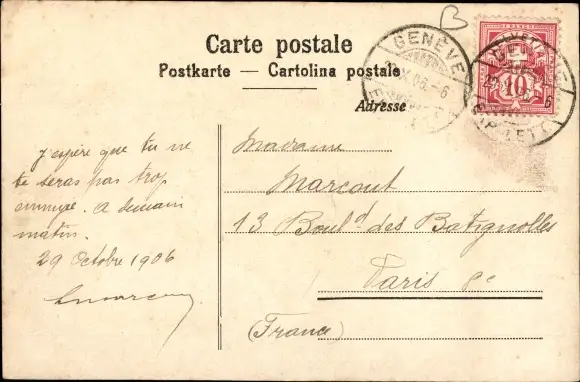 Carte postale
Postkarte — Cartolina postale
Adresse
GENÈVE
HELVETIA
FRANCO
10
GENÈVE
EXP. LETT.
J'espère que tu ne
te seras pas trop
ennuyé. A demain
matin.
29 Octobre 1906
Madame
Marcout
13 Boul.d des Batignolles
Paris
(France)